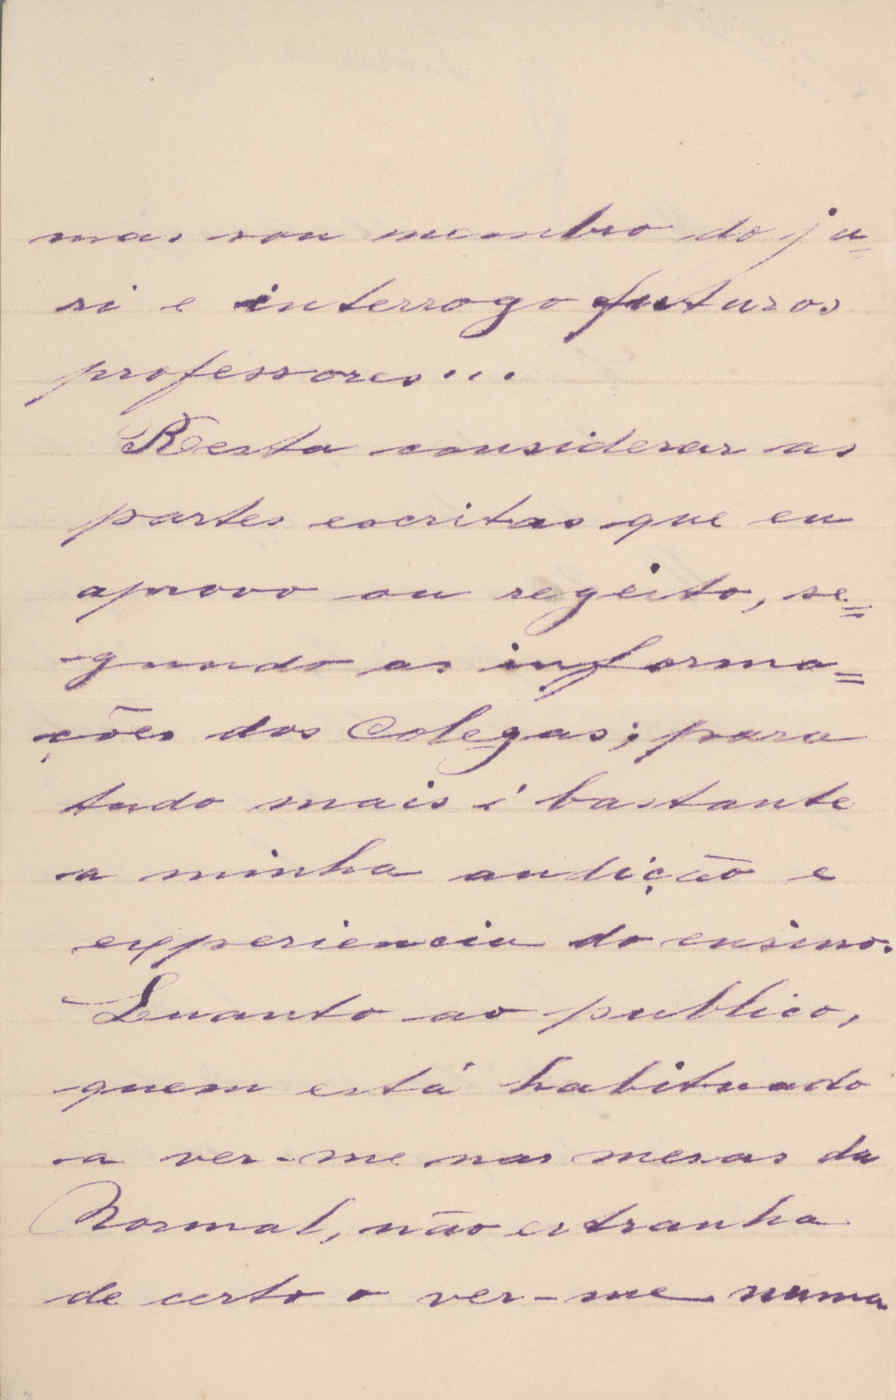 mas sou membro do ju=
ri e interrogo futuros
professores...
Resta considerar as
partes escritas que eu
aprovo ou regeito, se=
gundo as informa=
ções dos colegas; para
tudo mais é bastante
a minha audição e
experiencia do ensino.
Quanto ao publico,
quem está habituado
a ver-me nas mesas da
Normal, não estranha
de certo o ver-me numa